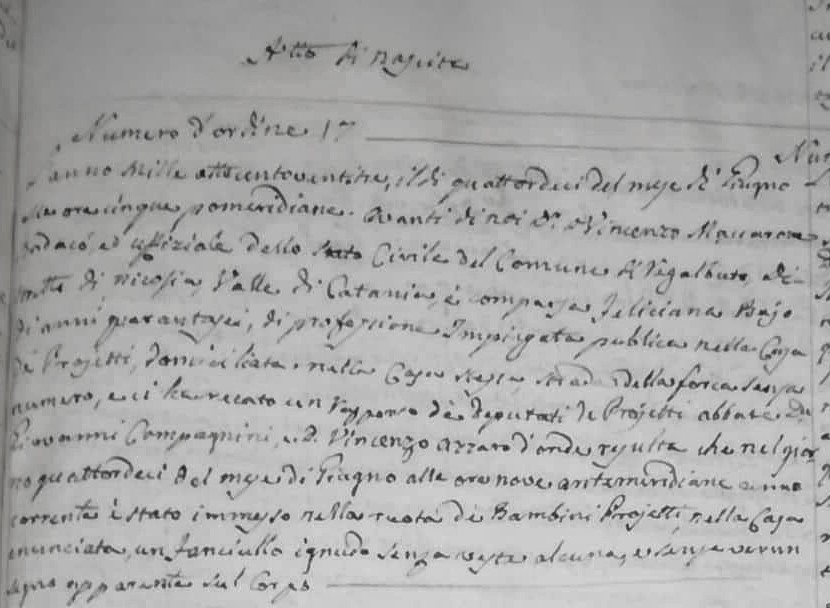 Atto di nascita
Numero d'ordine 17
L'anno Mille ottocentoventitre, il dì quattordeci del mese di Giugno
alle ore cinque pomeridiane. Avanti di noi D. Vincenzo
Sindaco, ed uffiziale dello Stato Civile del Comune di Regalbuto, di-
stretto di Nicosia, Valle di Catania, è comparsa Feliciana Bajo
di anni quarantasei, di professione Impiegata publica nella Casa
de Projetti, domiciliata nella Casa stessa, strada della forca senza
numero, e ci ha recato un rapporto de deputati de Projetti abbate D.
Giovanni Compagnini, e D. Vincenzo Azzaro d'onde risulta che nel gior-
no quattordeci del mese di Giugno alle ore nove antemeridiane anno
corrente è stato immesso nella ruota de Bambini Projetti nella Casa
enunciata, un fanciullo ignudo senza veste alcuna, e senza verun
segno apparente sul Corpo